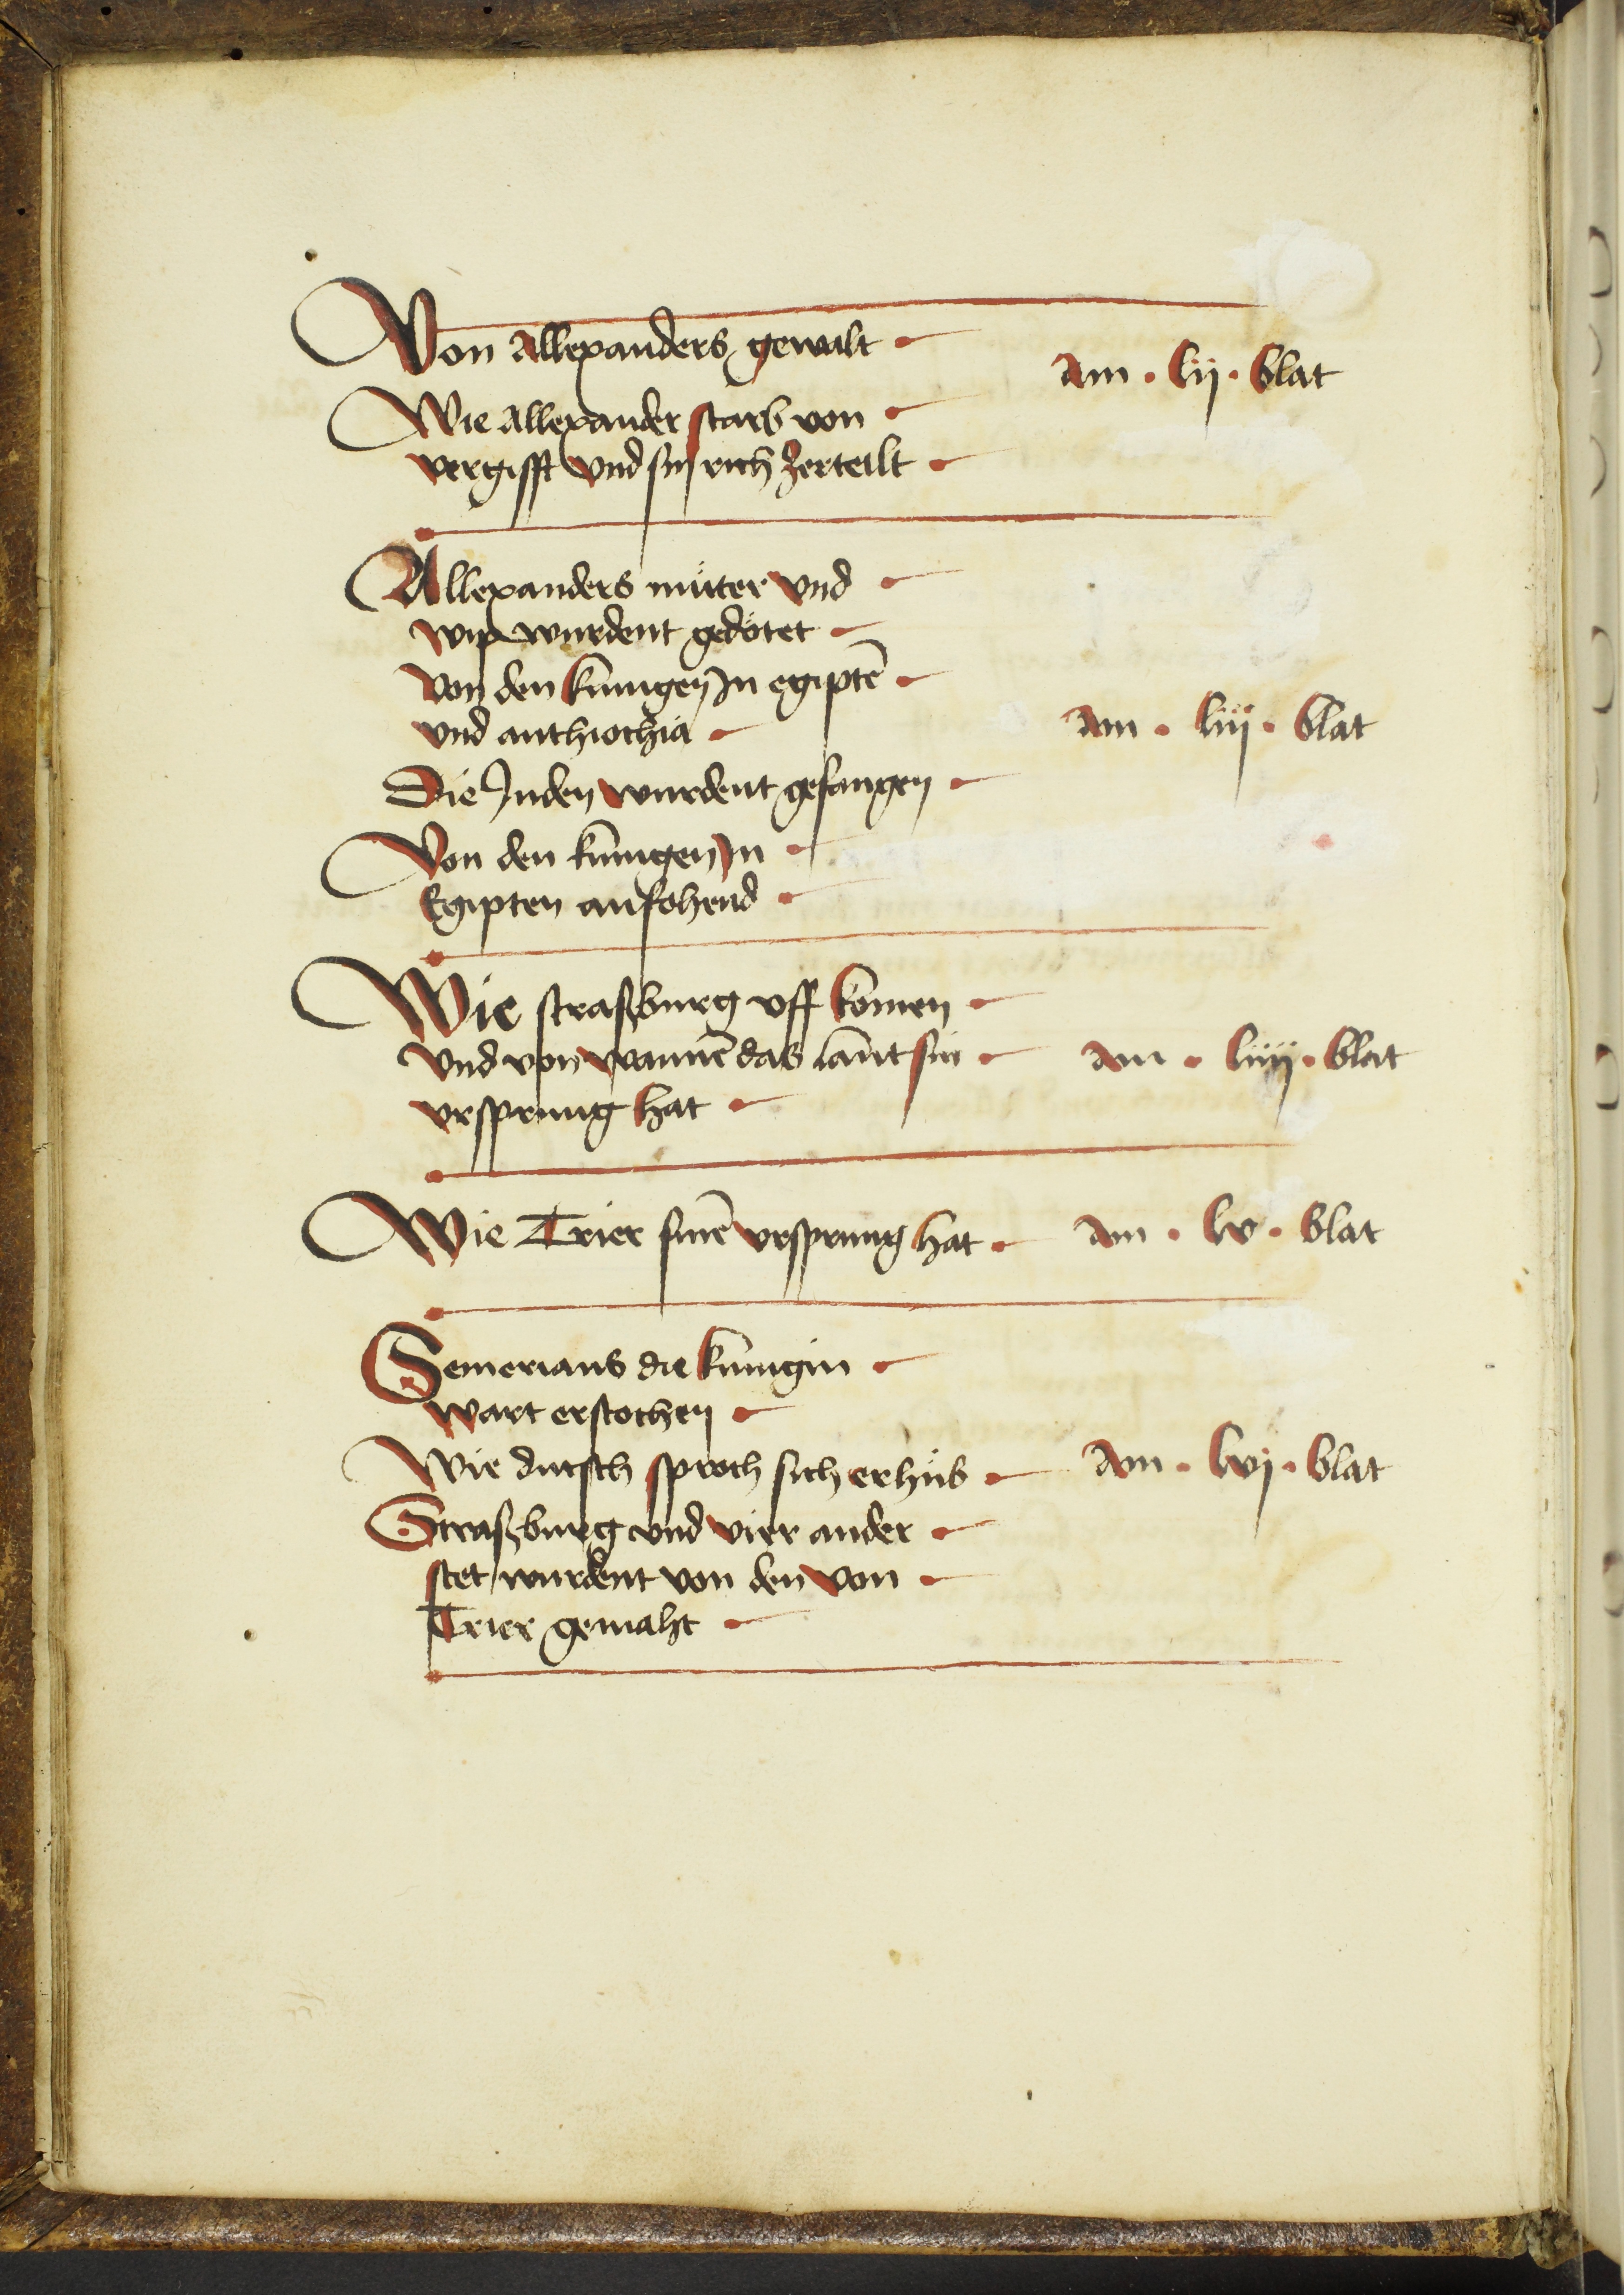 Von Allexanders gewalt
am · lij · blat
Wie Allexander starb von
vergifft vnd sin rich zerteilt
Allexanders müter vnd
wip wurdent gedötet
von den künigen Jn egiptē
vnd anthiochia
am · liij · blat
Die Juden wurdent gefangen
Von den künigen Jn
Egipten anfohend
Wie straßburg vff komen
vnd von wannē das lant sin
am · liiij · blat
vrsprung hat
Wie Trier sinē vrsprung hat
am · lv · blat
Semerians die künigin
wart erstochen
Wie dutsch sproch sich erhüb
am · lvj · blat
Straßburg vnd vier ander
stet wurdent von den von
Trier gemaht